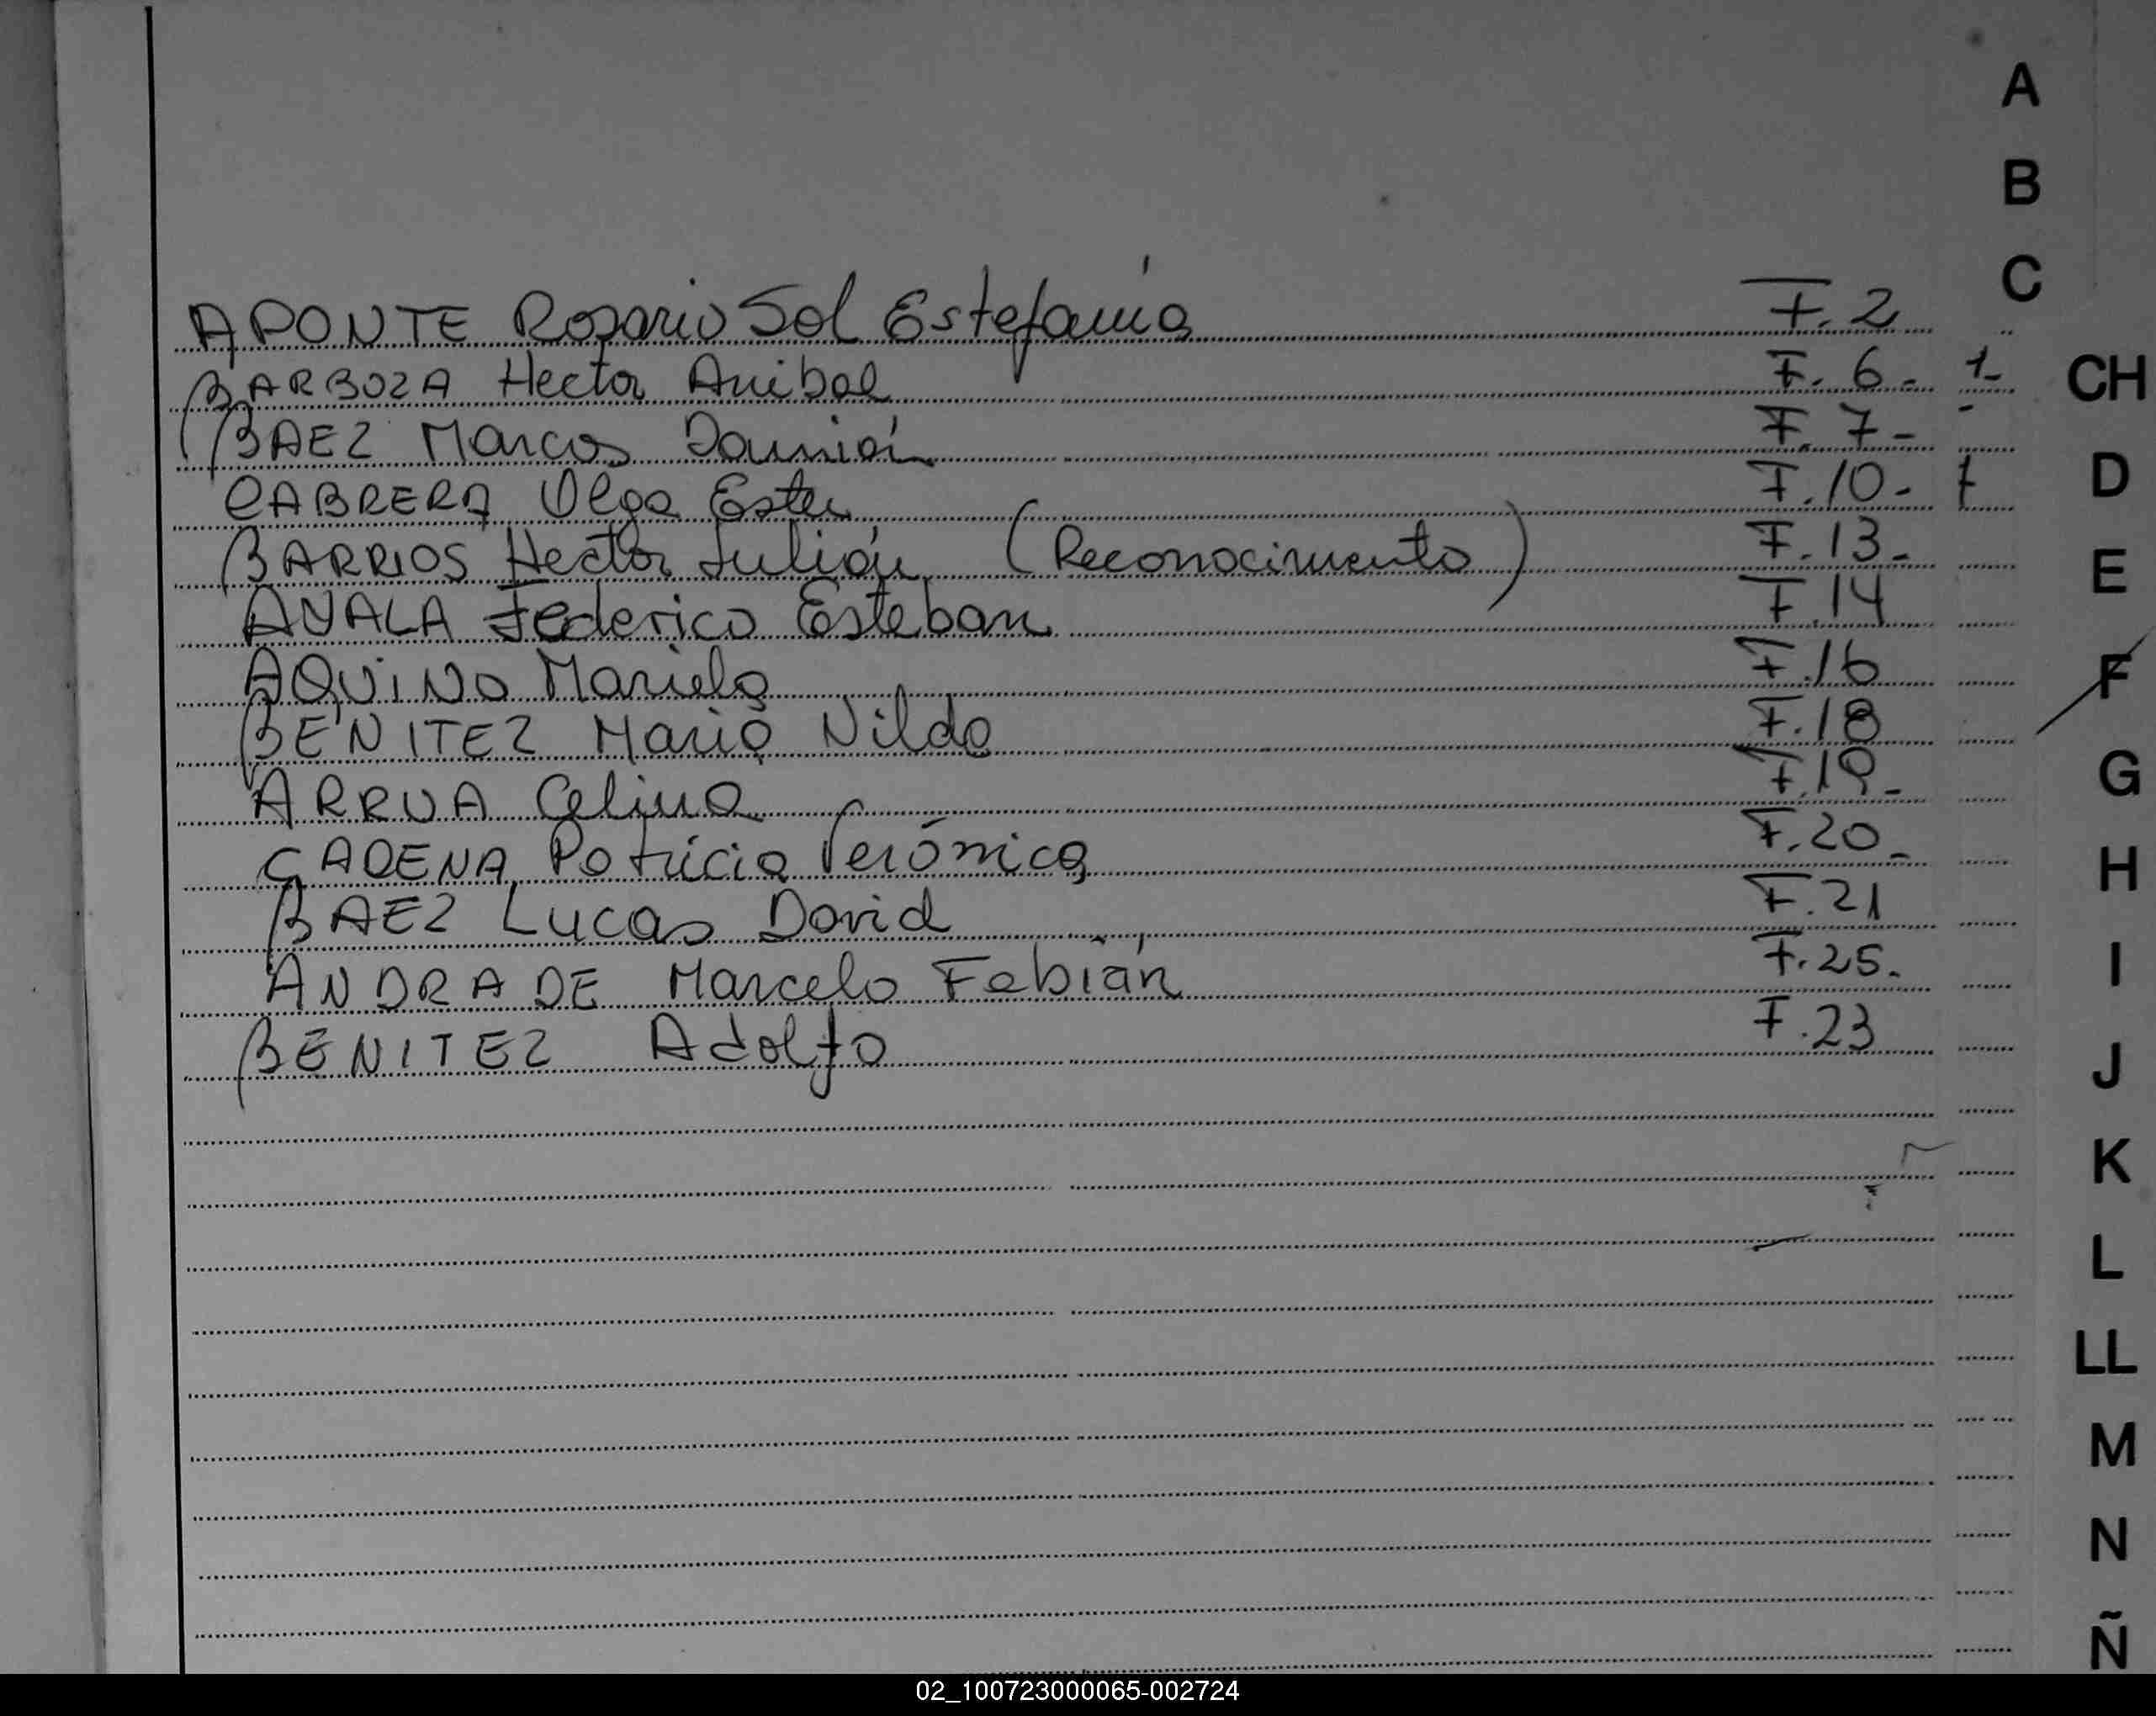 A
B
C
APONTE Rosario Sol Estefanía F. 2
BARBOZA Hector Anibal F. 6.- 1-
BAEZ Marcos Damián F. 7-
CABRERA Olga Ester F. 10.-
BARRIOS Hector Julián (Reconocimiento) F. 13.-
AYALA Federico Esteban F. 14
AQUINO Mariela F. 16
BENITEZ María Nilda F. 18
ARRUA Celina F. 19.-
CADENA Patricia Verónica F. 20.-
BAEZ Lucas David F. 21
ANDRADE Marcelo Fabián F. 25.
BENITEZ Adolfo F. 23
CH
D
E
F
G
H
I
J
K
L
LL
M
N
Ñ
02_100723000065-002724